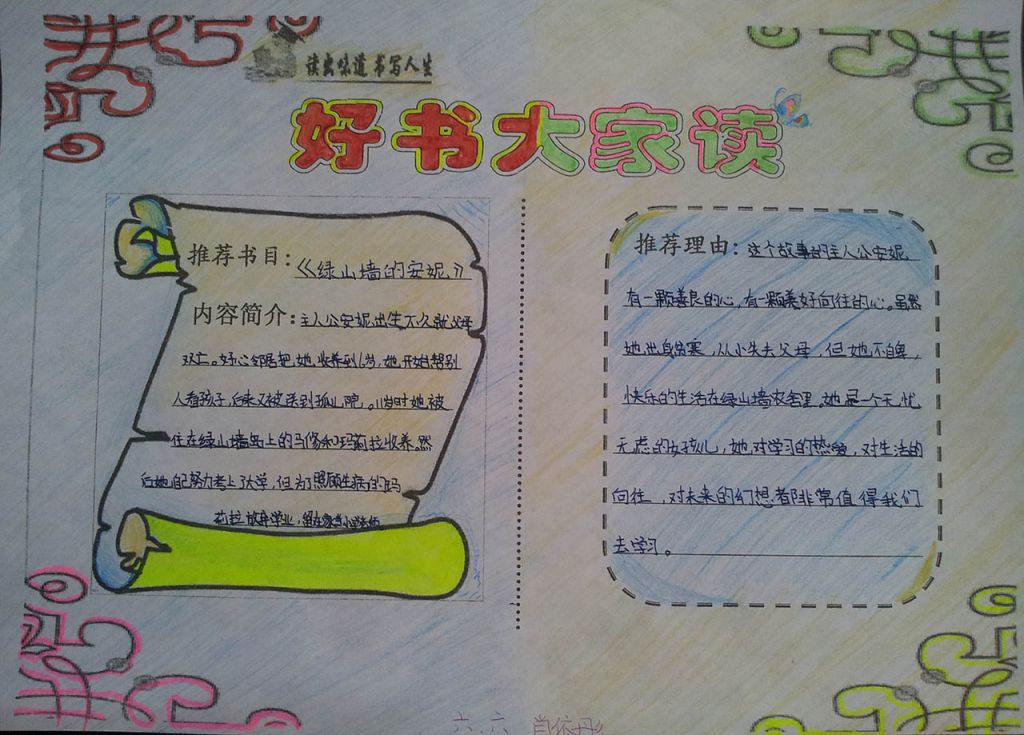 读出味道 书写人生
好书大家读
推荐书目：《绿山墙的安妮》
内容简介：主人公安妮出生不久就父母
双亡。好心邻居把她收养到6岁，她开始帮别
人看孩子，后来又被送到孤儿院。11岁时她被
住在绿山墙岛上的马修和玛莉拉收养。然
后她自己努力考上了大学，但为了照顾生病的玛
莉拉放弃学业，留在家当小学老师
推荐理由：这个故事的主人公安妮，
有一颗善良的心，有一颗美好向往的心。虽然
她出身贫寒，从小失去父母，但她不自卑，
快乐的生活在绿山墙农舍里。她是一个无忧
无虑的女孩儿，她对学习的热爱，对生活的
向往，对未来的幻想都非常值得我们
去学习。
六、六 肖依彤